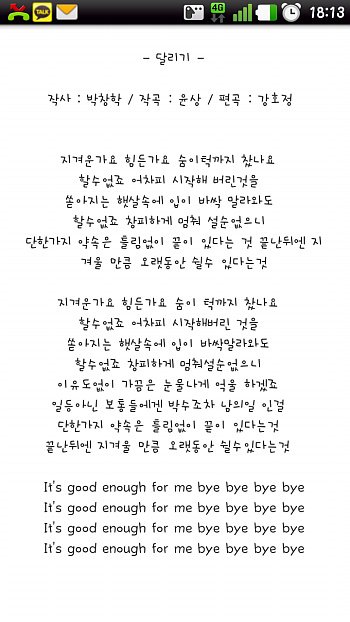 TALK
4G
18:13
– 달리기 –
작사 : 박창학 / 작곡 : 윤상 / 편곡 : 강호정
지겨운가요 힘든가요 숨이턱까지 찼나요
할수없죠 어차피 시작해 버린것을
쏟아지는 햇살속에 입이 바싹 말라와도
할수없죠 창피하게 멈춰 설순없으니
단한가지 약속은 틀림없이 끝이 있다는 것 끝난뒤엔 지
겨울 만큼 오랫동안 쉴수 있다는것
지겨운가요 힘든가요 숨이 턱까지 찼나요
할수없죠 어차피 시작해버린 것을
쏟아지는 햇살속에 입이 바싹말라와도
할수없죠 창피하게 멈춰설순없으니
이유도없이 가끔은 눈물나게 억울 하겠죠
일등아닌 보통들에겐 박수조차 남의일 인걸
단한가지 약속은 틀림없이 끝이 있다는것
끝난뒤엔 지겨울 만큼 오랫동안 쉴수있다는것
It's good enough for me bye bye bye bye
It's good enough for me bye bye bye bye
It's good enough for me bye bye bye bye
It's good enough for me bye bye bye bye